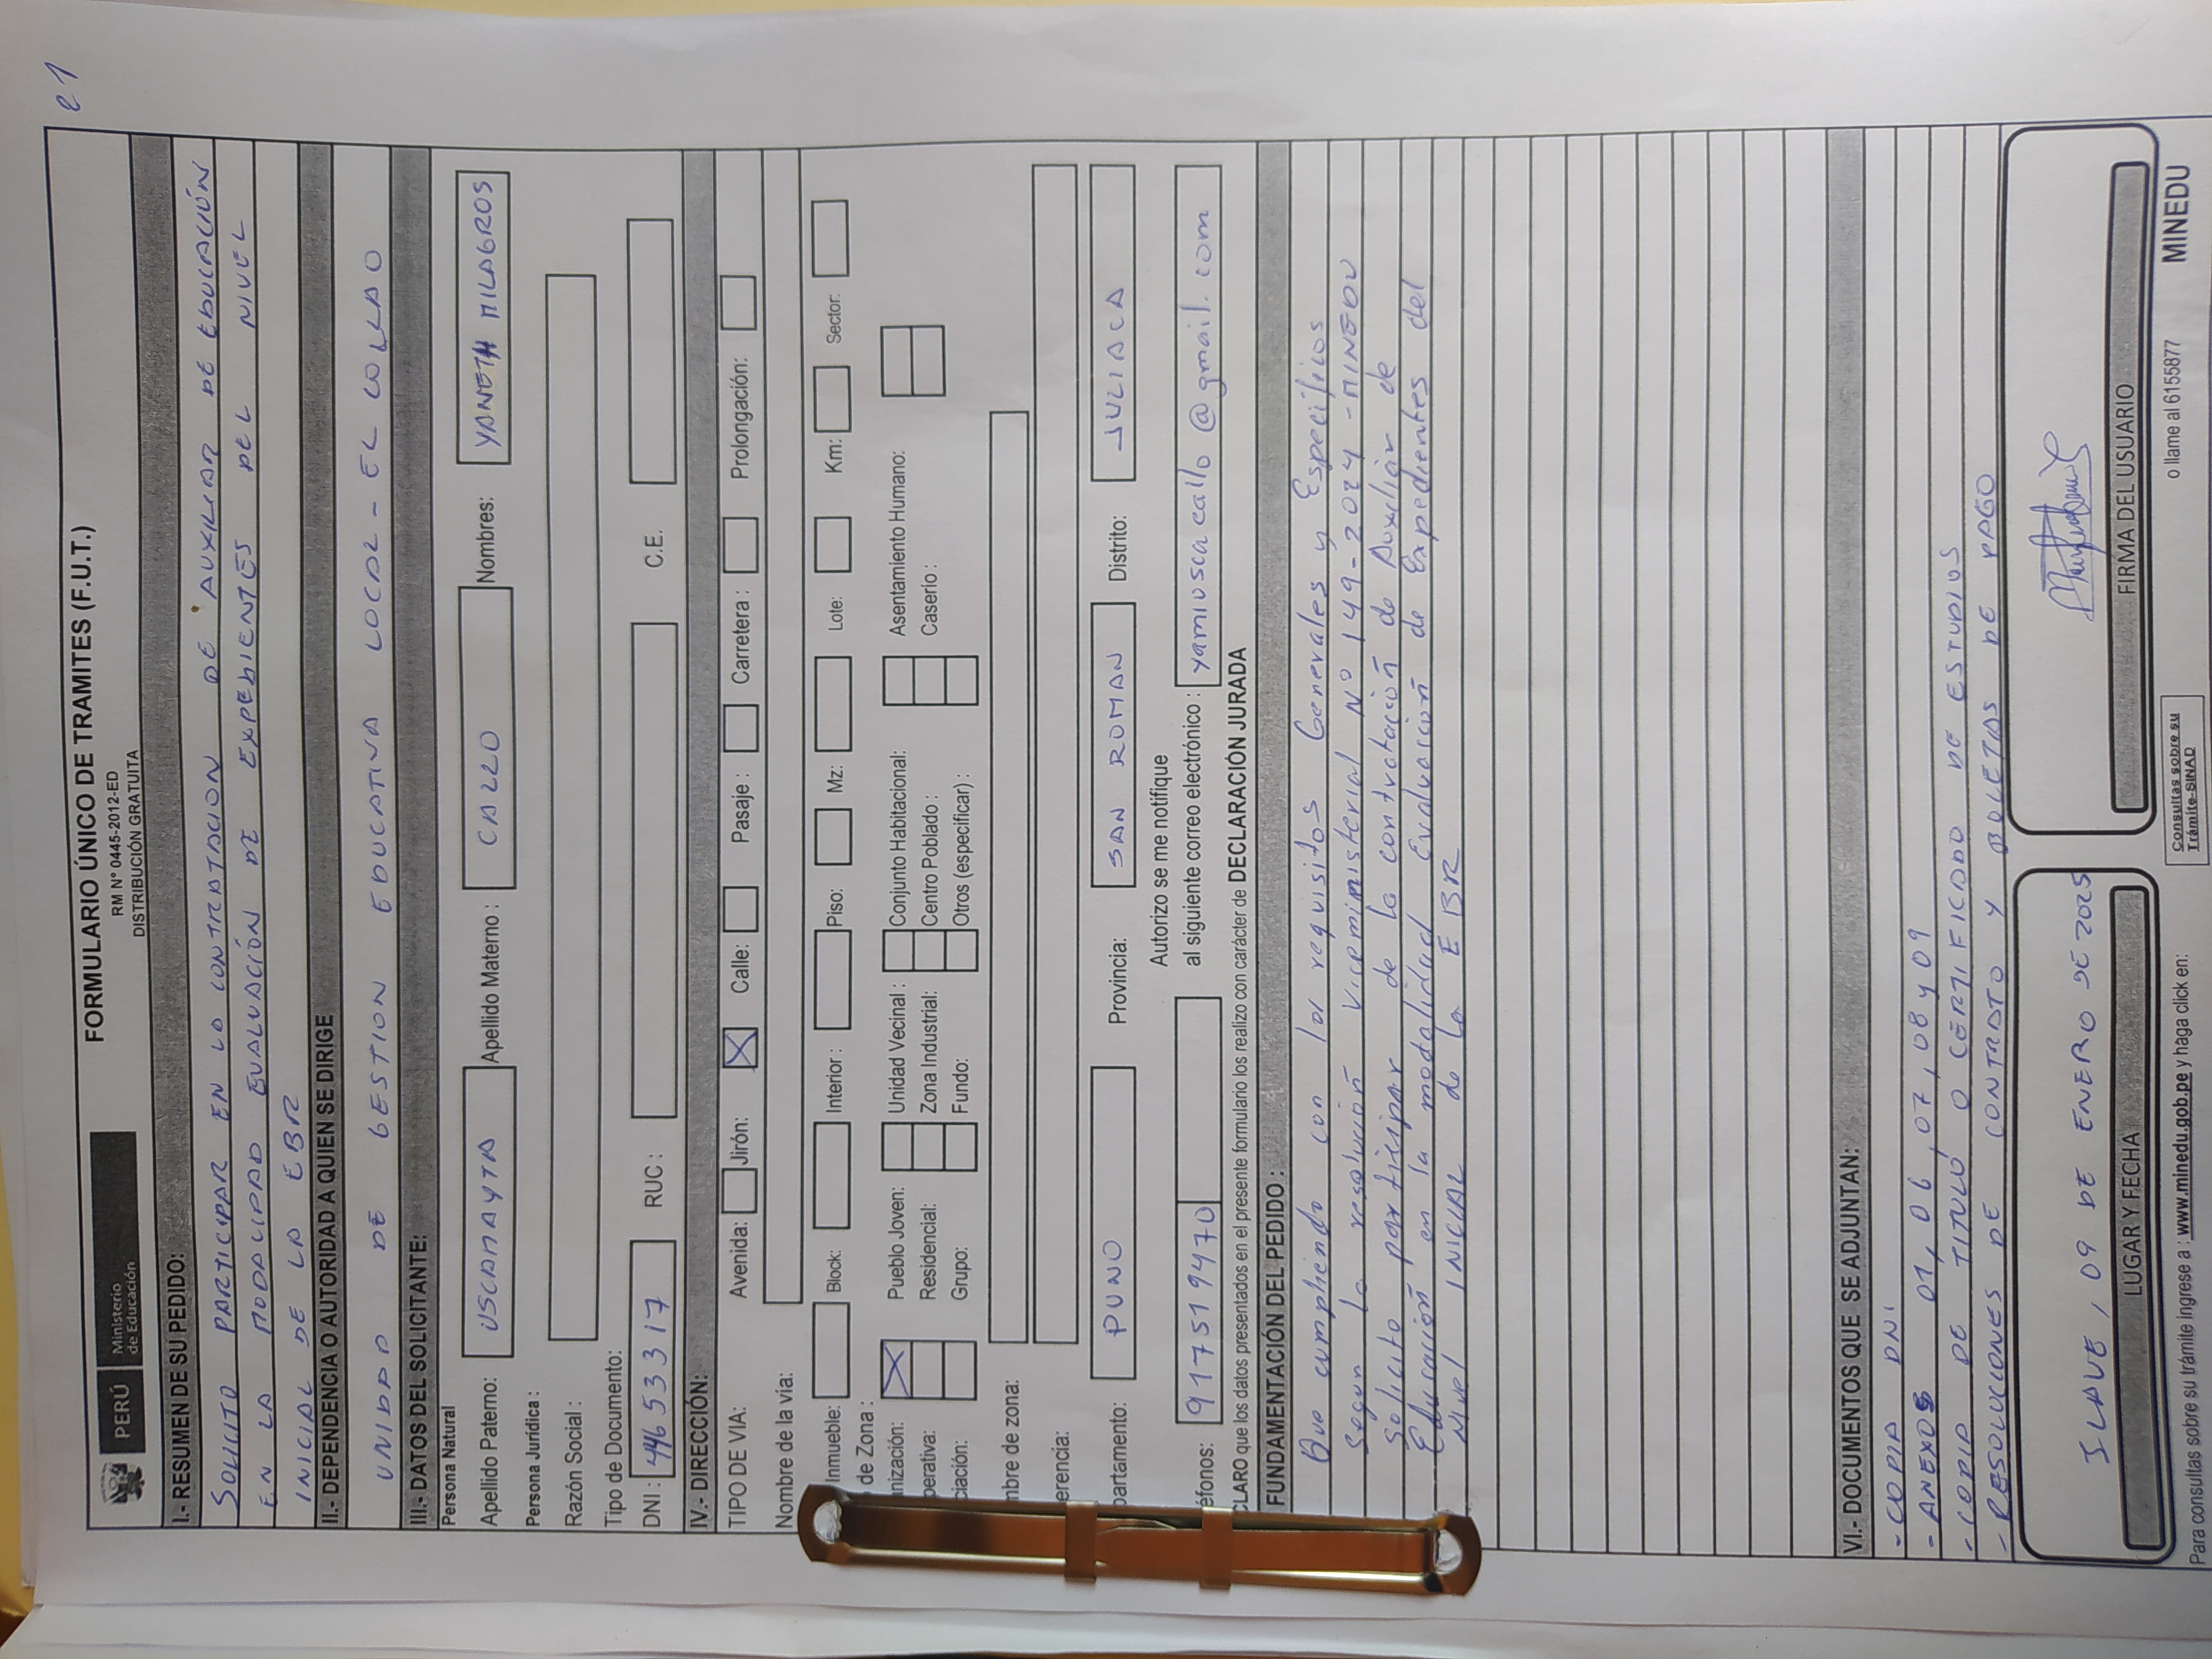 21
PERÚ Ministerio de Educación
FORMULARIO ÚNICO DE TRAMITES (F.U.T.)
RM Nº 0445-2012-ED
DISTRIBUCIÓN GRATUITA
I.- RESUMEN DE SU PEDIDO:
SOLICITO PARTICIPAR EN LA CONTRATACION DE AUXILIAR DE EDUCACIÓN
EN LA MODALIDAD EVALUACIÓN DE EXPEDIENTES DEL NIVEL
INICIAL DE LA EBR
II.- DEPENDENCIA O AUTORIDAD A QUIEN SE DIRIGE
UNIDAD DE GESTION EDUCATIVA LOCAL - EL COLLAO
III.- DATOS DEL SOLICITANTE:
Persona Natural
Apellido Paterno: USCAMAYTA Apellido Materno : CALLO Nombres: YANETH MILAGROS
Persona Jurídica :
Razón Social :
Tipo de Documento:
DNI : 44653317 RUC : C.E.
IV.- DIRECCIÓN:
TIPO DE VIA: Avenida: Jirón: X Calle: Pasaje : Carretera : Prolongación:
Nombre de la vía:
Inmueble: Block: Interior : Piso: Mz: Lote: Km: Sector:
de Zona :
nización: X Pueblo Joven: Unidad Vecinal : Conjunto Habitacional: Asentamiento Humano:
perativa: Residencial: Zona Industrial: Centro Poblado : Caserío :
ciación: Grupo: Fundo: Otros (especificar) :
mbre de zona:
erencia:
partamento: PUNO Provincia: SAN ROMAN Distrito: JULIACA
Autorizo se me notifique
éfonos: 917519470 al siguiente correo electrónico : yamiuscacallo@gmail.com
CLARO que los datos presentados en el presente formulario los realizo con carácter de DECLARACIÓN JURADA
FUNDAMENTACIÓN DEL PEDIDO :
Que cumpliendo con los requisitos Generales y Especificos
segun la resolución Viceministerial Nº 149-2024-MINEDU
Solicito participar de la contratación de Auxiliar de
Educación en la modalidad Evaluación de Expedientes del
Nivel INICIAL de la EBR
VI.- DOCUMENTOS QUE SE ADJUNTAN:
- COPIA DNI.
- ANEXOS 01, 06, 07, 08 y 09
- COPIA DE TITULO, O CERTIFICADO DE ESTUDIOS
- RESOLUCIONES DE CONTRATO Y BOLETAS DE PAGO
ILAVE, 09 DE ENERO DE 2025
LUGAR Y FECHA FIRMA DEL USUARIO
Para consultas sobre su trámite ingrese a : www.minedu.gob.pe y haga click en: Consultas sobre su Trámite-SINAD o llame al 6155877 MINEDU